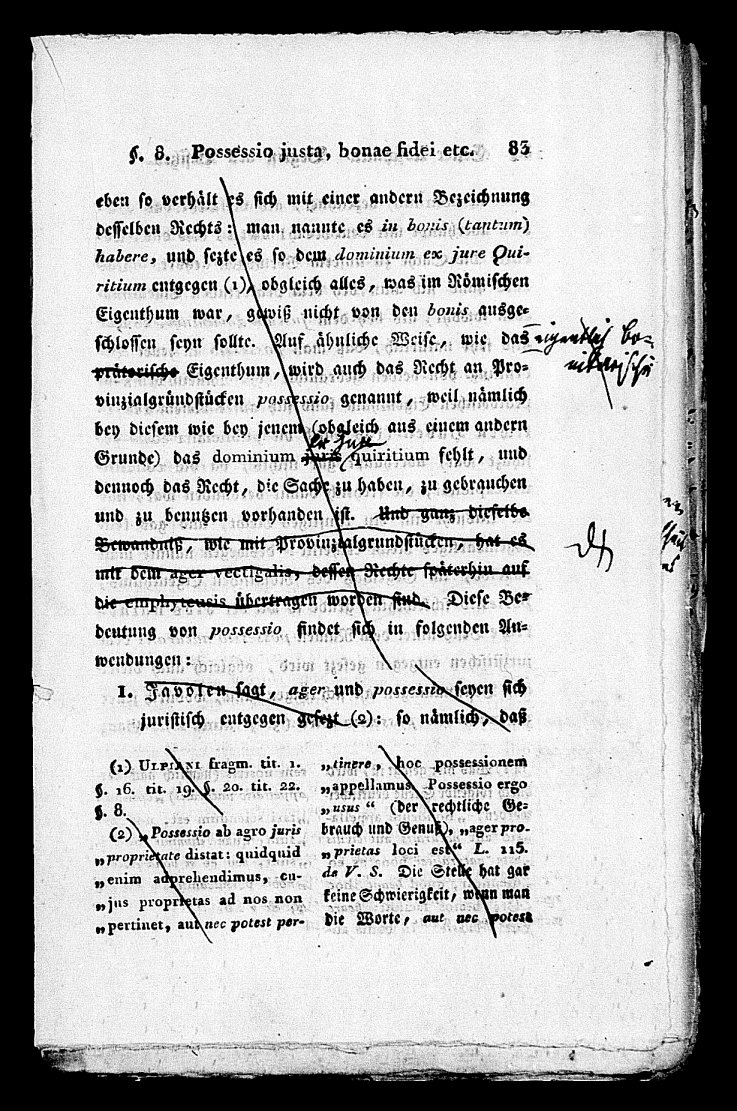 §. 8. Possessio justa, bonae fidei etc. 83
eben so verhält es sich mit einer andern Bezeichnung
desselben Rechts: man nannte es in bonis (tantum)
habere, und sezte es so dem dominium ex jure Qui-
ritium entgegen (1), obgleich alles, was im Römischen
Eigenthum war, gewiß nicht von den bonis ausge-
schlossen seyn sollte. Auf ähnliche Weise, wie das eigentlich bo-
nitarische
prätorische Eigenthum, wird auch das Recht an Pro-
vinzialgründstücken possessio genannt, weil nämlich
bey diesem wie bey jenem (obgleich aus einem andern
Grunde) das dominium juris quiritium fehlt, und
dennoch das Recht, die Sache zu haben, zu gebrauchen
und zu benutzen vorhanden ist. Und ganz dieselbe
Bewandniß, wie mit Provinzialgrundstücken, hat es
mit dem ager vectigalis, dessen Rechte späterhin auf
die emphyteusis übertragen worden sind. Diese Be-
deutung von possessio findet sich in folgenden An-
wendungen:
1. Javolen sagt, ager und possessio seyen sich
juristisch entgegen gesezt (2): so nämlich, daß
(1) ULPIANI fragm. tit. 1.
§. 16. tit. 19. §. 20. tit. 22.
§. 8.
(2) „Possessio ab agro juris
„proprietate distat: quidquid
„enim adprehendimus, cu-
„jus proprietas ad nos non
„pertinet, aut nec potest per-
„tinere, hoc possessionem
„appellamus. Possessio ergo
„usus“ (der rechtliche Ge-
brauch und Genuß), „ager pro-
„prietas loci est“ L. 115.
de V. S. Die Stelle hat gar
keine Schwierigkeit, wenn man
die Worte, aut nec potest